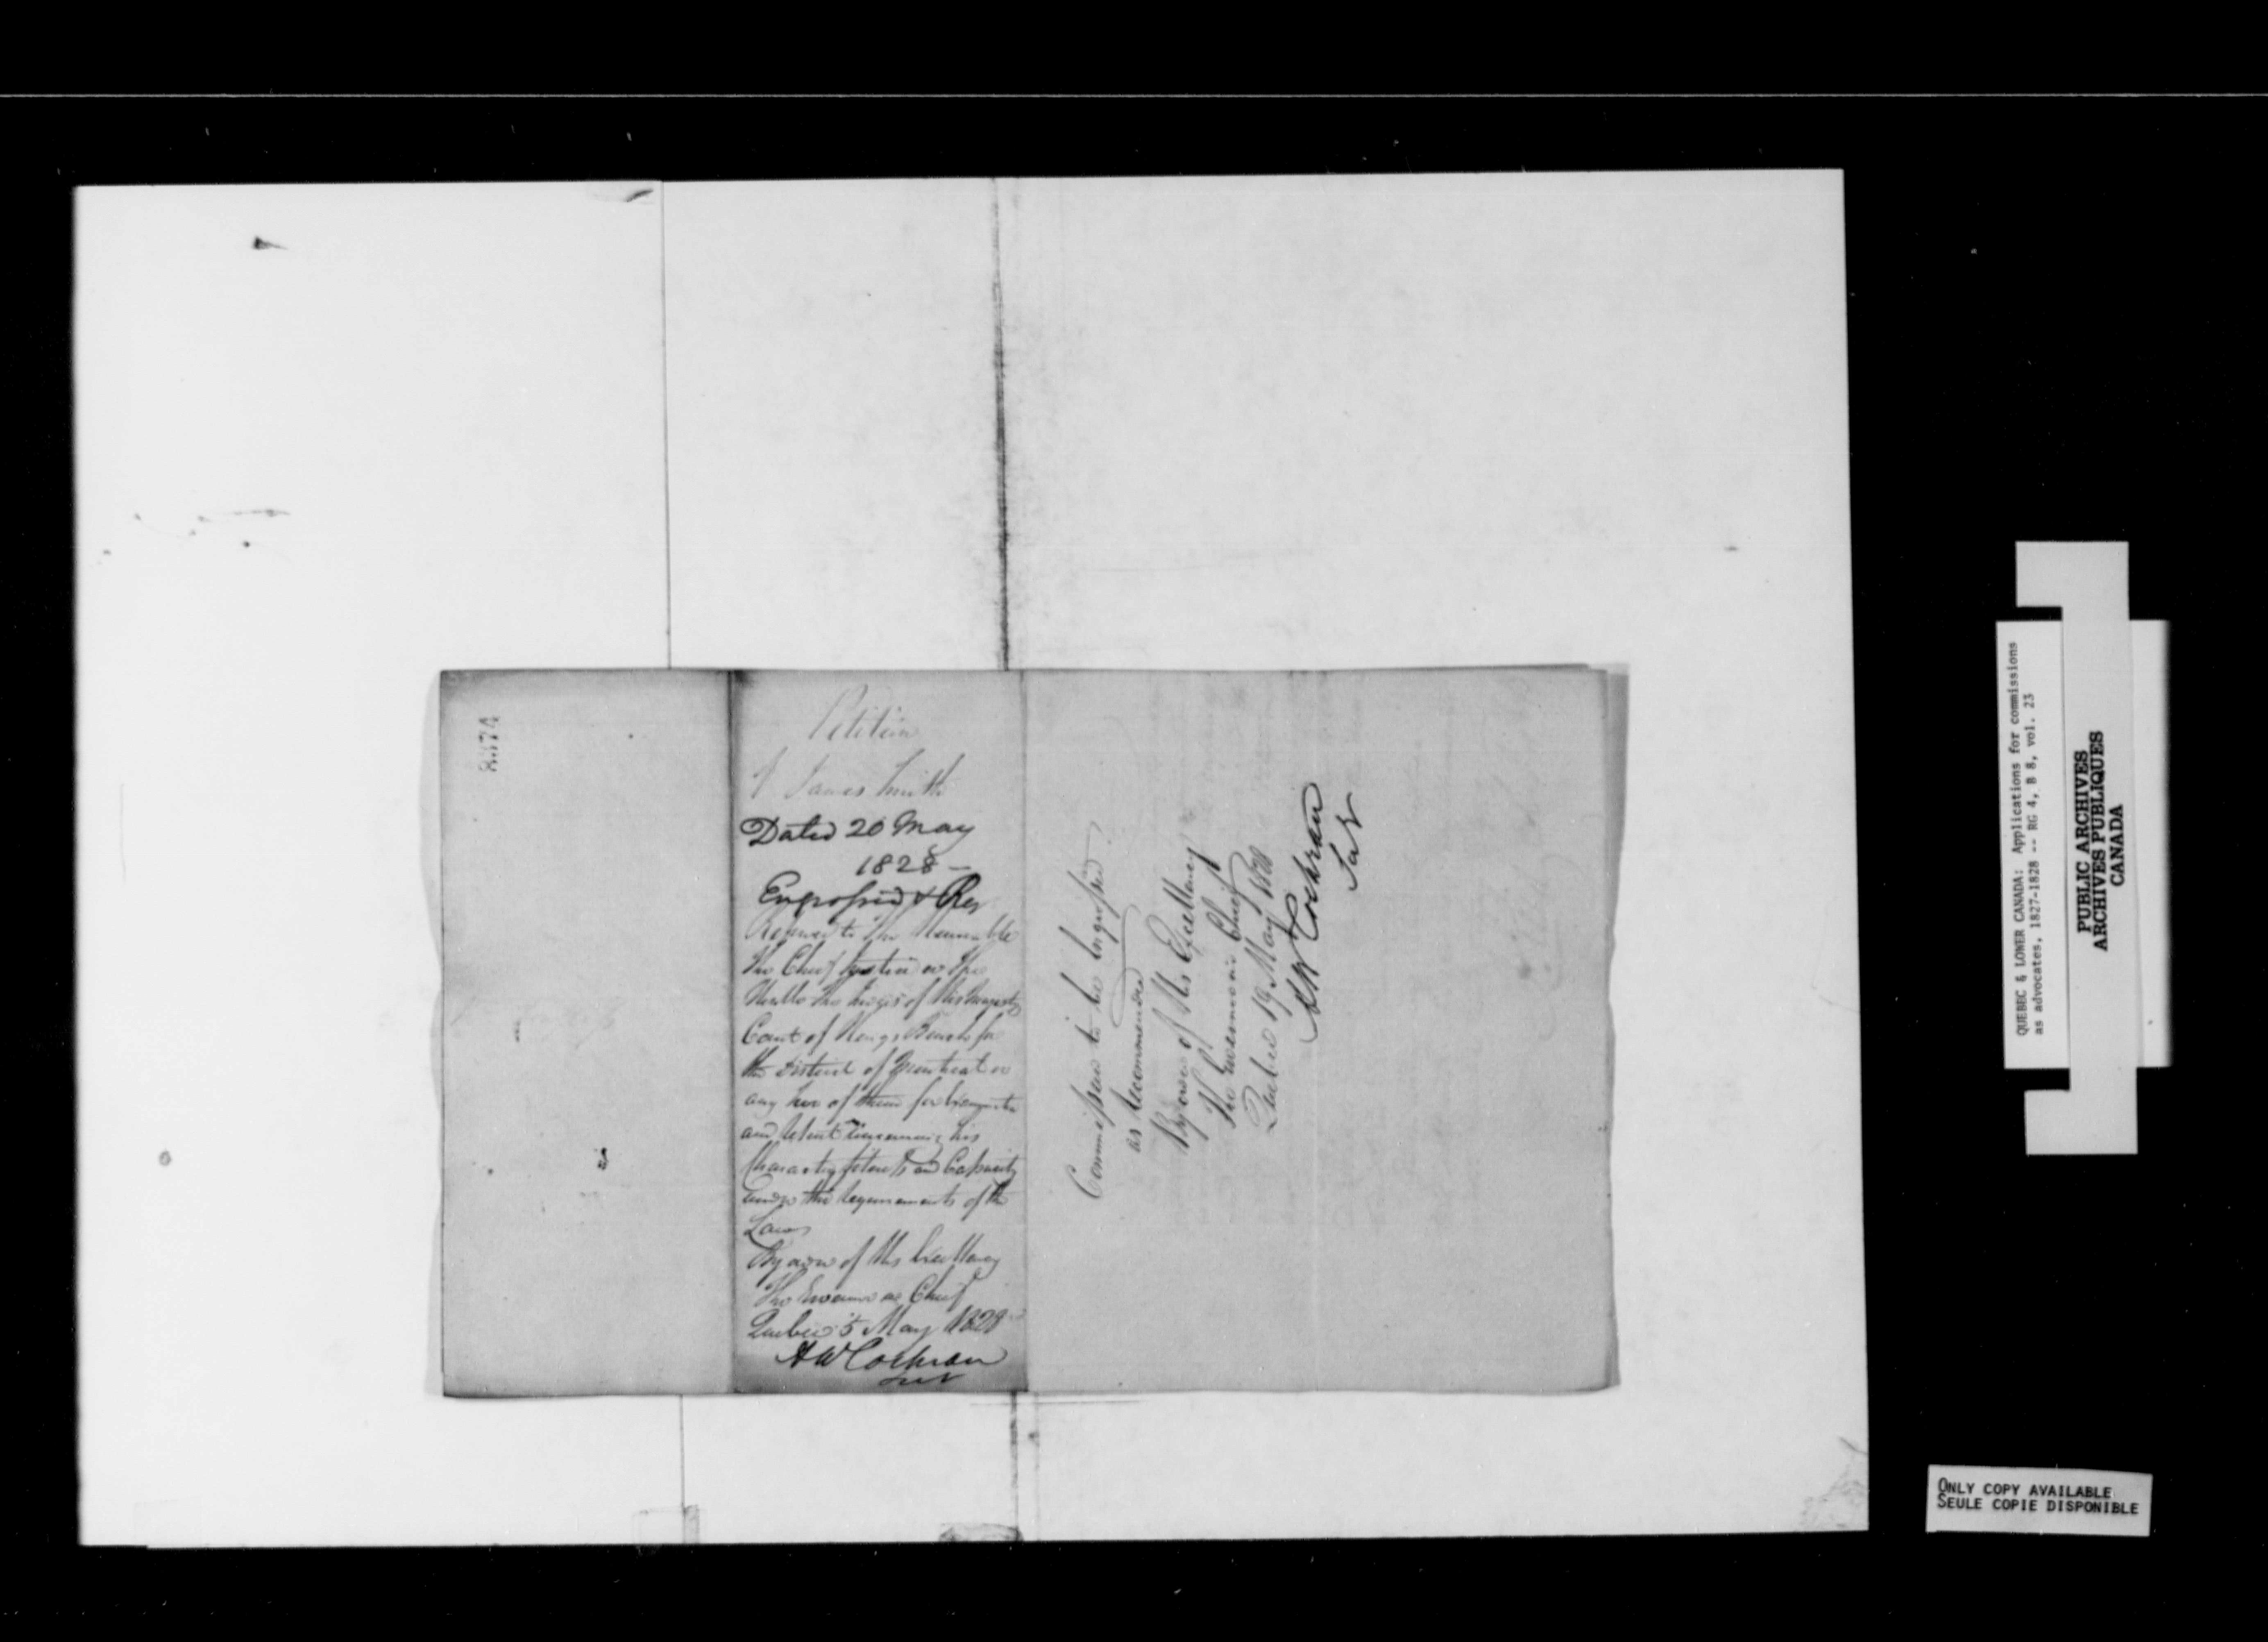 8874
Petition
of James Smith
Dated 20 May
1828 –
Engrossed & Reg
Referred to the Honorable
the Chief Justice or the
Honble the Judges of His Majestys
Court of Kings Bench for
the District of Montreal or
any two of them for
and Report concerning his
Character fitness and Capacity
under the requirements of the
Law
By order of His Excellency
The Governor in Chief
Quebec 5 May 1828
A W Cochran
Secy
Commission to be Engrossed
as recommended
By order of His Excellency
The Governor in Chief
Quebec 19 May 1828
A W Cochran
Secy
QUEBEC & LOWER CANADA: Applications for commissions
as advocates, 1827-1828 -- RG 4, B 8, vol. 23
PUBLIC ARCHIVES
ARCHIVES PUBLIQUES
CANADA
ONLY COPY AVAILABLE
SEULE COPIE DISPONIBLE